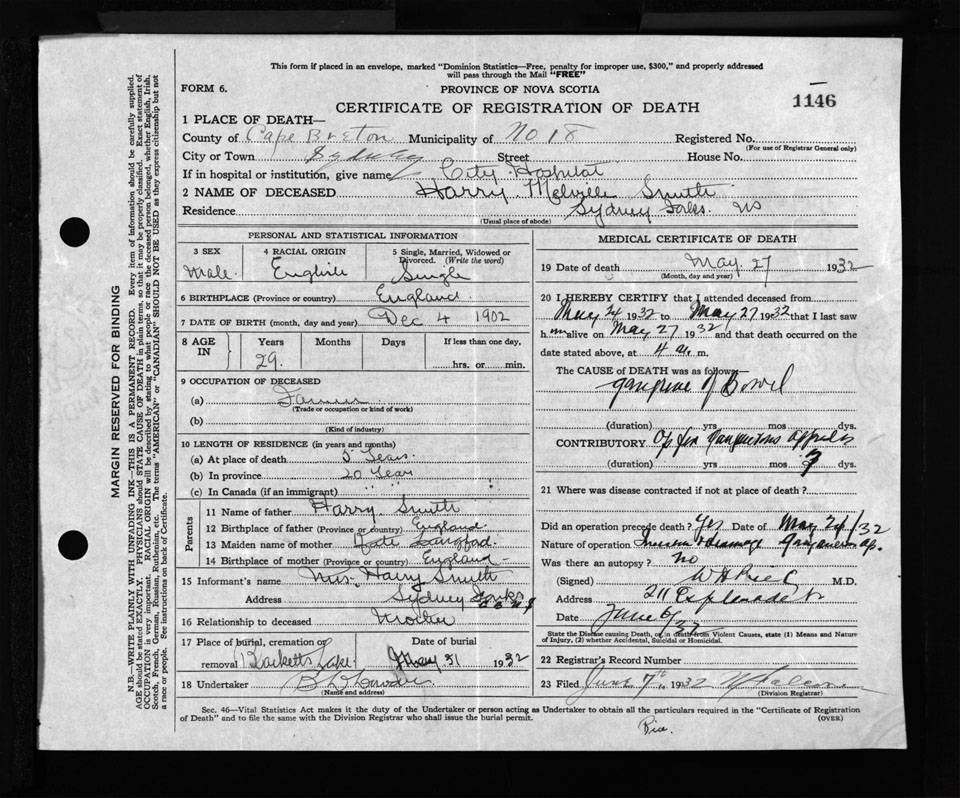 This form if placed in an envelope, marked "Dominion Statistics—Free, penalty for improper use, $300," and properly addressed
will pass through the Mail "FREE"
FORM 6.
PROVINCE OF NOVA SCOTIA
1146
CERTIFICATE OF REGISTRATION OF DEATH
1 PLACE OF DEATH—
County of Cape Breton Municipality of No 18 Registered No.
(For use of Registrar General only)
City or Town Sydney Street House No.
If in hospital or institution, give name City Hospital
2 NAME OF DECEASED Harry Melville Smith
Residence Sydney Forks. NS
(Usual place of abode)
PERSONAL AND STATISTICAL INFORMATION
3 SEX
Male.
4 RACIAL ORIGIN
English
5 Single, Married, Widowed or
Divorced. (Write the word)
Single
6 BIRTHPLACE (Province or country) England
7 DATE OF BIRTH (month, day and year) Dec 4 1902
8 AGE
IN
Years
29.
Months
Days
If less than one day,
hrs. or min.
9 OCCUPATION OF DECEASED
(a) Farmer
(Trade or occupation or kind of work)
(b)
(Kind of industry)
10 LENGTH OF RESIDENCE (in years and months)
(a) At place of death 5 Years.
(b) In province 20 Year
(c) In Canada (if an immigrant) " "
Parents
11 Name of father Harry Smith
12 Birthplace of father (Province or country) England
13 Maiden name of mother Kate Langford.
14 Birthplace of mother (Province or country) England
15 Informant's name Mrs. Harry Smith
Address Sydney Forks
16 Relationship to deceased Mother
17 Place of burial, cremation or
removal Blacketts Lake.
Date of burial
May 31 1932
18 Undertaker
(Name and address)
MEDICAL CERTIFICATE OF DEATH
19 Date of death May 27 1932
(Month, day and year)
20 I HEREBY CERTIFY that I attended deceased from
May 24 1932 to May 27 1932 that I last saw
h im alive on May 27 1932 and that death occurred on the
date stated above, at 4 a. m.
The CAUSE of DEATH was as follows:
Gangrene of Bowel
(duration) yrs mos dys.
CONTRIBUTORY Op for Gangrenous
(duration) yrs mos 3 dys.
21 Where was disease contracted if not at place of death?
Did an operation precede death? Yes Date of May 24/32
Nature of operation
Was there an autopsy? No
(Signed) M.D.
Address 211 Esplanade
Date June 6/32
State the Disease causing Death, or, in death from Violent Causes, state (1) Means and Nature
of Injury, (2) whether Accidental, Suicidal or Homicidal.
22 Registrar's Record Number
23 Filed June 7th 1932
(Division Registrar)
Sec. 46—Vital Statistics Act makes it the duty of the Undertaker or person acting as Undertaker to obtain all the particulars required in the "Certificate of Registration
of Death" and to file the same with the Division Registrar who shall issue the burial permit.
(OVER)
MARGIN RESERVED FOR BINDING
N.B.—WRITE PLAINLY WITH UNFADING INK—THIS IS A PERMANENT RECORD. Every item of information should be carefully supplied.
AGE should be stated EXACTLY. PHYSICIANS should STATE CAUSE OF DEATH in plain terms, so that it may be properly classified. Exact statement of
OCCUPATION is very important. RACIAL ORIGIN will be described by stating to what people or race the deceased person belonged, whether English, Irish,
Scotch, French, German, Russian, Ruthenian, etc. The terms "AMERICAN" or "CANADIAN" SHOULD NOT BE USED as they express citizenship but not
a race or people. See instructions on back of Certificate.